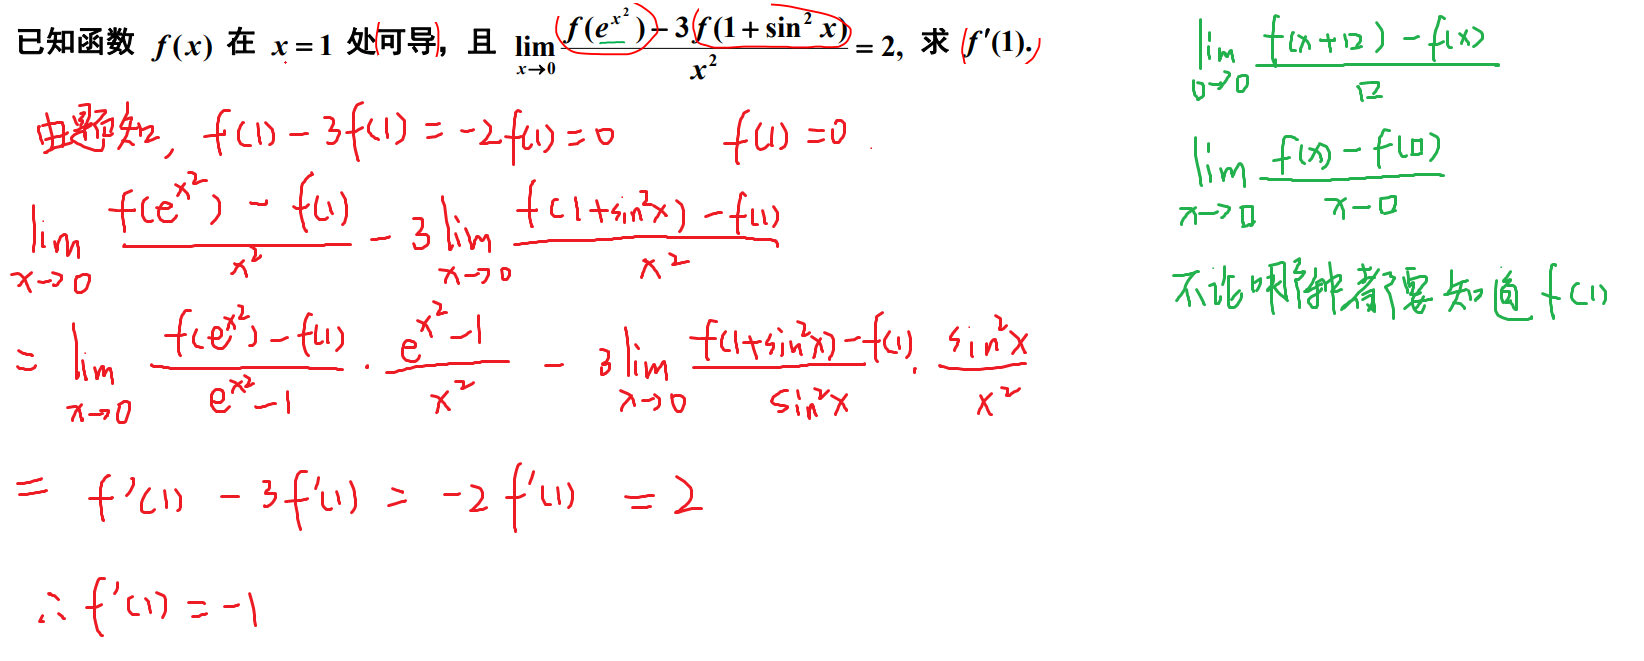 已知函数 f(x) 在 x=1 处可导，且 lim_{x→0} (f(e^{x²})-3f(1+sin²x))/x² = 2, 求 f'(1).
由题知, f(1)-3f(1)=-2f(1)=0 f(1)=0.
lim_{x→0} (f(e^{x²})-f(1))/x² - 3 lim_{x→0} (f(1+sin²x)-f(1))/x²
= lim_{x→0} (f(e^{x²})-f(1))/(e^{x²}-1) · (e^{x²}-1)/x² - 3 lim_{x→0} (f(1+sin²x)-f(1))/sin²x · sin²x/x²
= f'(1) - 3f'(1) = -2f'(1) = 2
∴ f'(1) = -1
lim_{□→0} (f(x+□)-f(x))/□
lim_{x→□} (f(x)-f(□))/(x-□)
不论哪种都要知道 f(1)